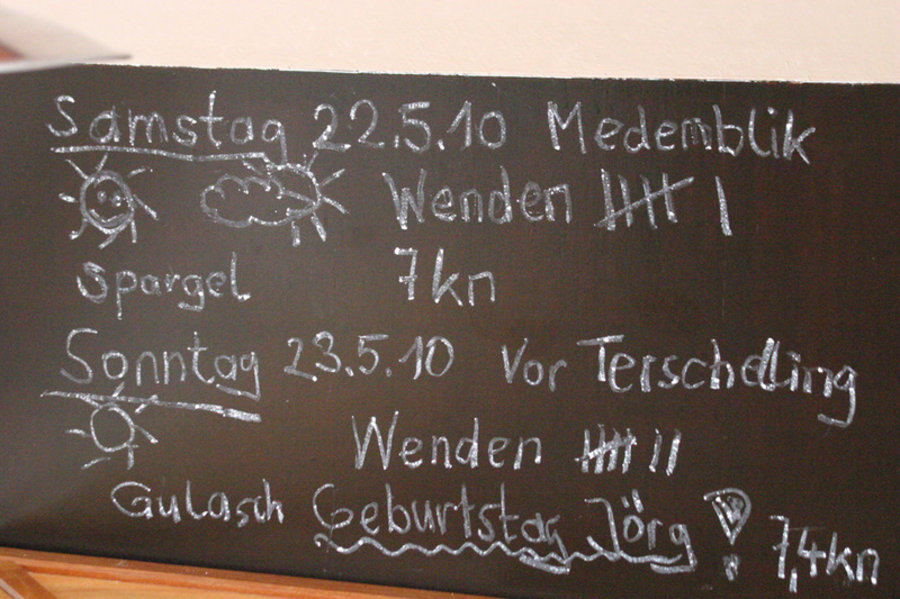 Samstag 22.5.10 Medemblik
Wenden 𝍸 |
Spargel 7kn
Sonntag 23.5.10 Vor Terschelling
Wenden 𝍸 ||
Gulasch Geburtstag Jörg! 7,4kn